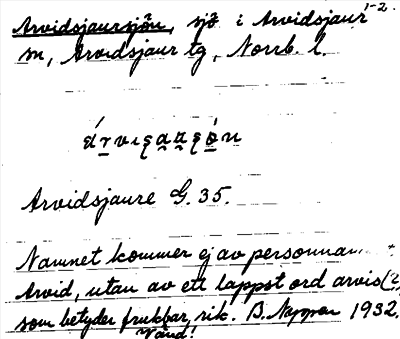 1-2.
Arvidsjaursjön, sjö i Arvidsjaur
sn, Arvidsjaur tg, Norrb. l.
Arvidsjaure G. 35.
Namnet kommer ej av
Arvid, utan av ett lappst ord arvis (?)
som betyder fruktbar, rik. B. 1932.
Vänd!